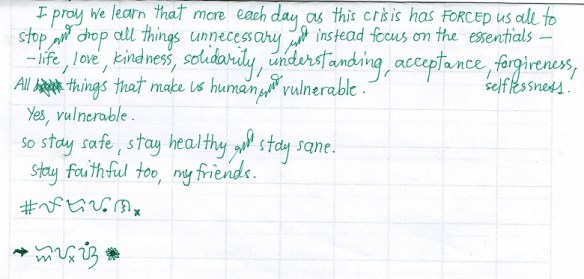 I pray we learn that more each day as this crisis has FORCED us all to
stop drop all things unnecessary instead focus on the essentials —
-life, love, kindness, solidarity, understanding, acceptance, forgiveness,
selflessness.
All things that make us human, vulnerable.
Yes, vulnerable.
so stay safe, stay healthy stay sane.
stay faithful too, my friends.